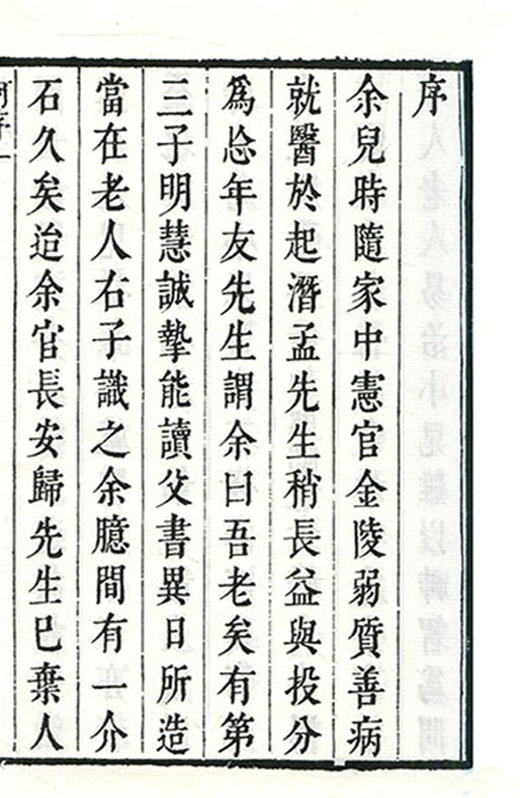 序
余兒時隨家中憲官金陵弱質善病
就醫於起潛孟先生稍長益與投分
爲忿年友先生謂余曰吾老矣有第
三子明慧誠摯能讀父書異日所造
當在老人右子識之余臆間有一介
石久矣迨余官長安歸先生已棄人